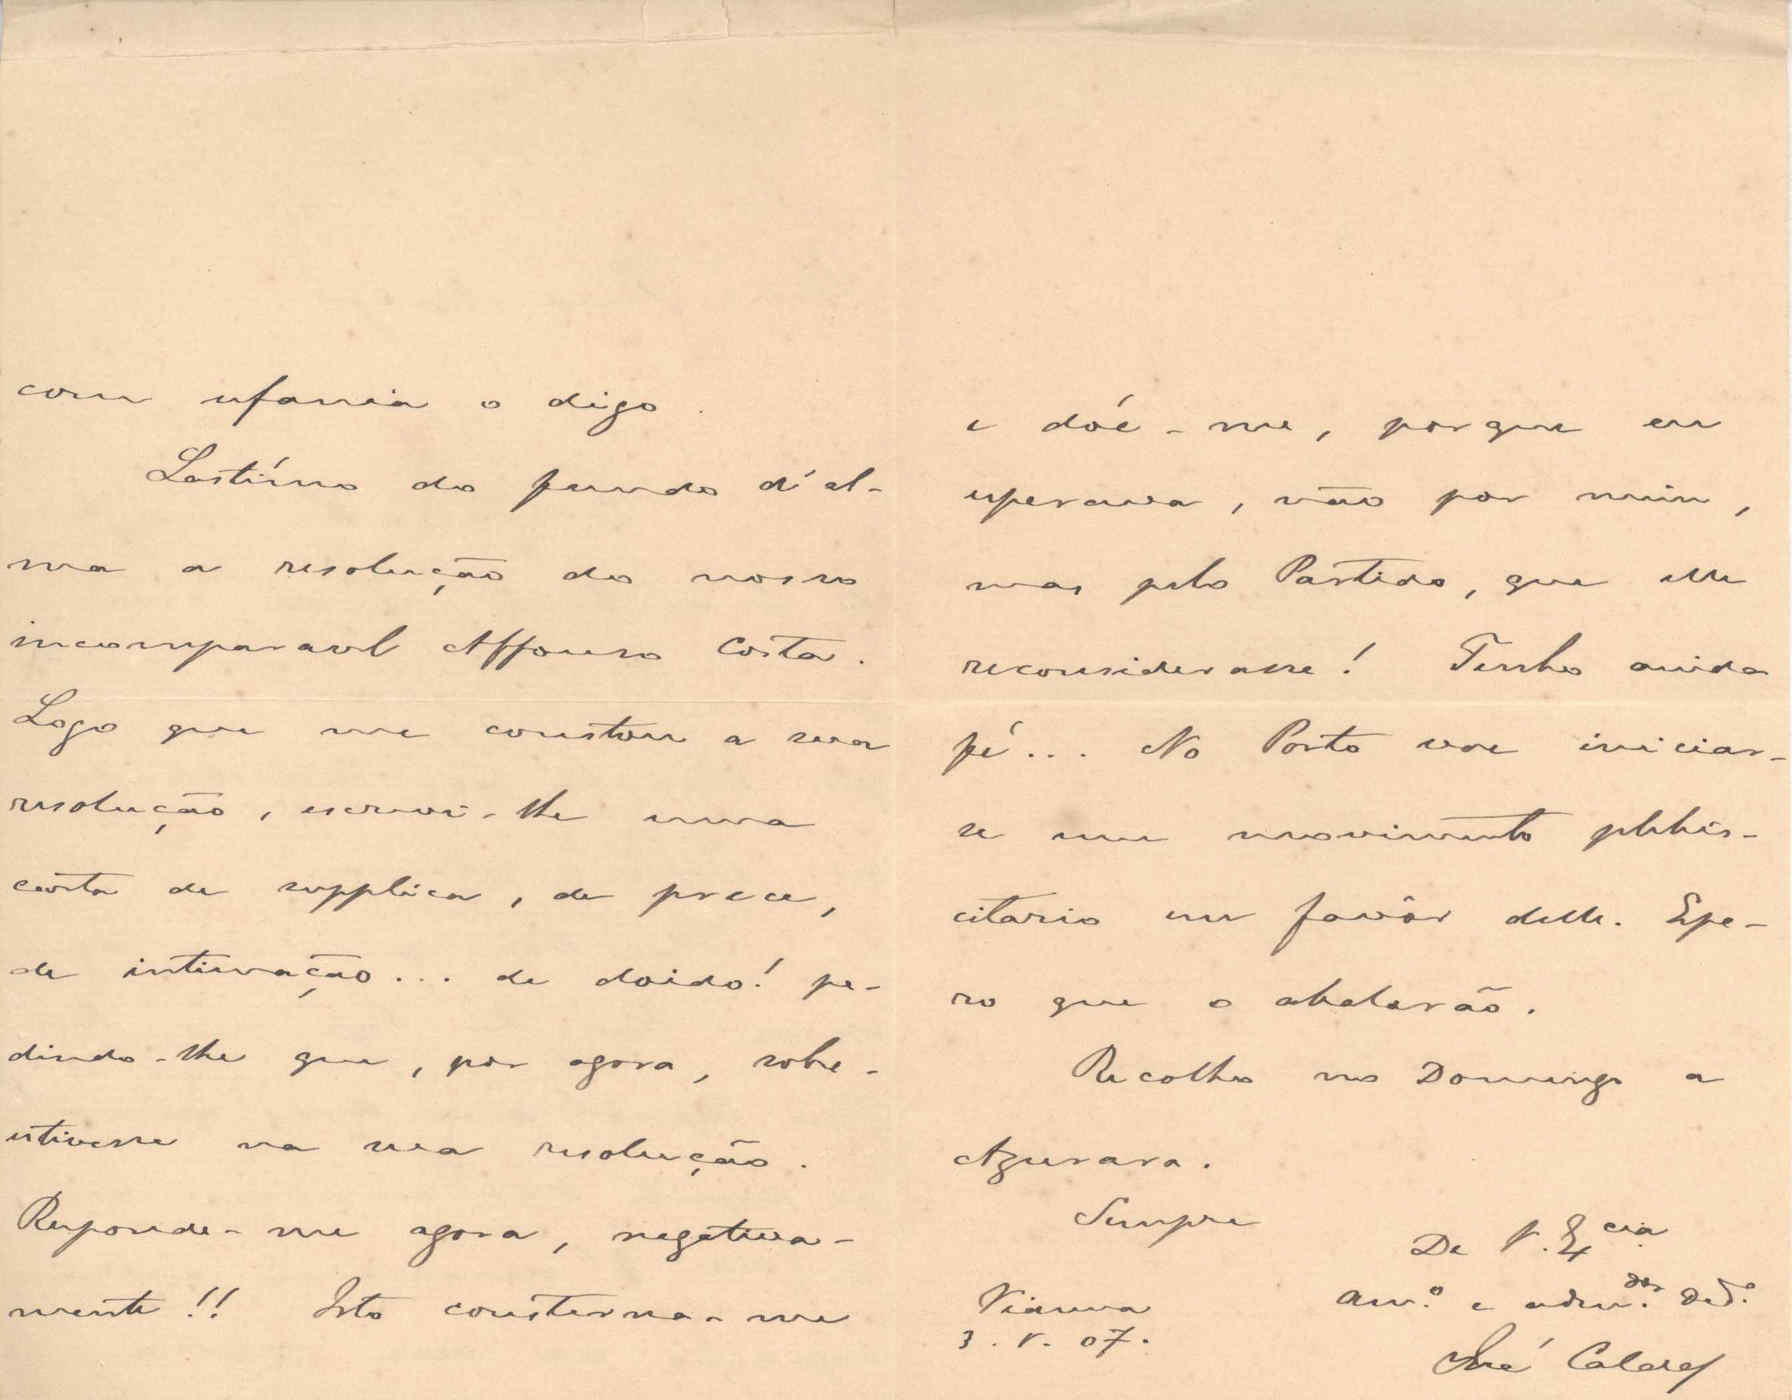 com ufania o digo.
Lastímo do fundo d'al-
ma a resolução do nosso
incomparavel Affonso Costa.
Logo que me constou a sua
resolução, escrevi-lhe uma
carta de supplica, de prece,
de intimação... de doido! pe-
dindo-lhe que, por agora, sobre-
estivesse na sua resolução.
Responde-me agora, negativa-
mente!! Isto consterna-me
e dóe-me, porque eu
esperava, não por mim,
mas pelo Partido, que elle
reconsiderasse! Tenho ainda
fé... No Porto vae iniciar-
se um movimento plebis-
citario em favôr delle. Espe-
ro que o abalarão.
Recolho no Domingo a
Azurara.
Sempre
De V. Excia
Am.º e adm.dor Ded.º
José Caldas
Vianna
3. V. 07.